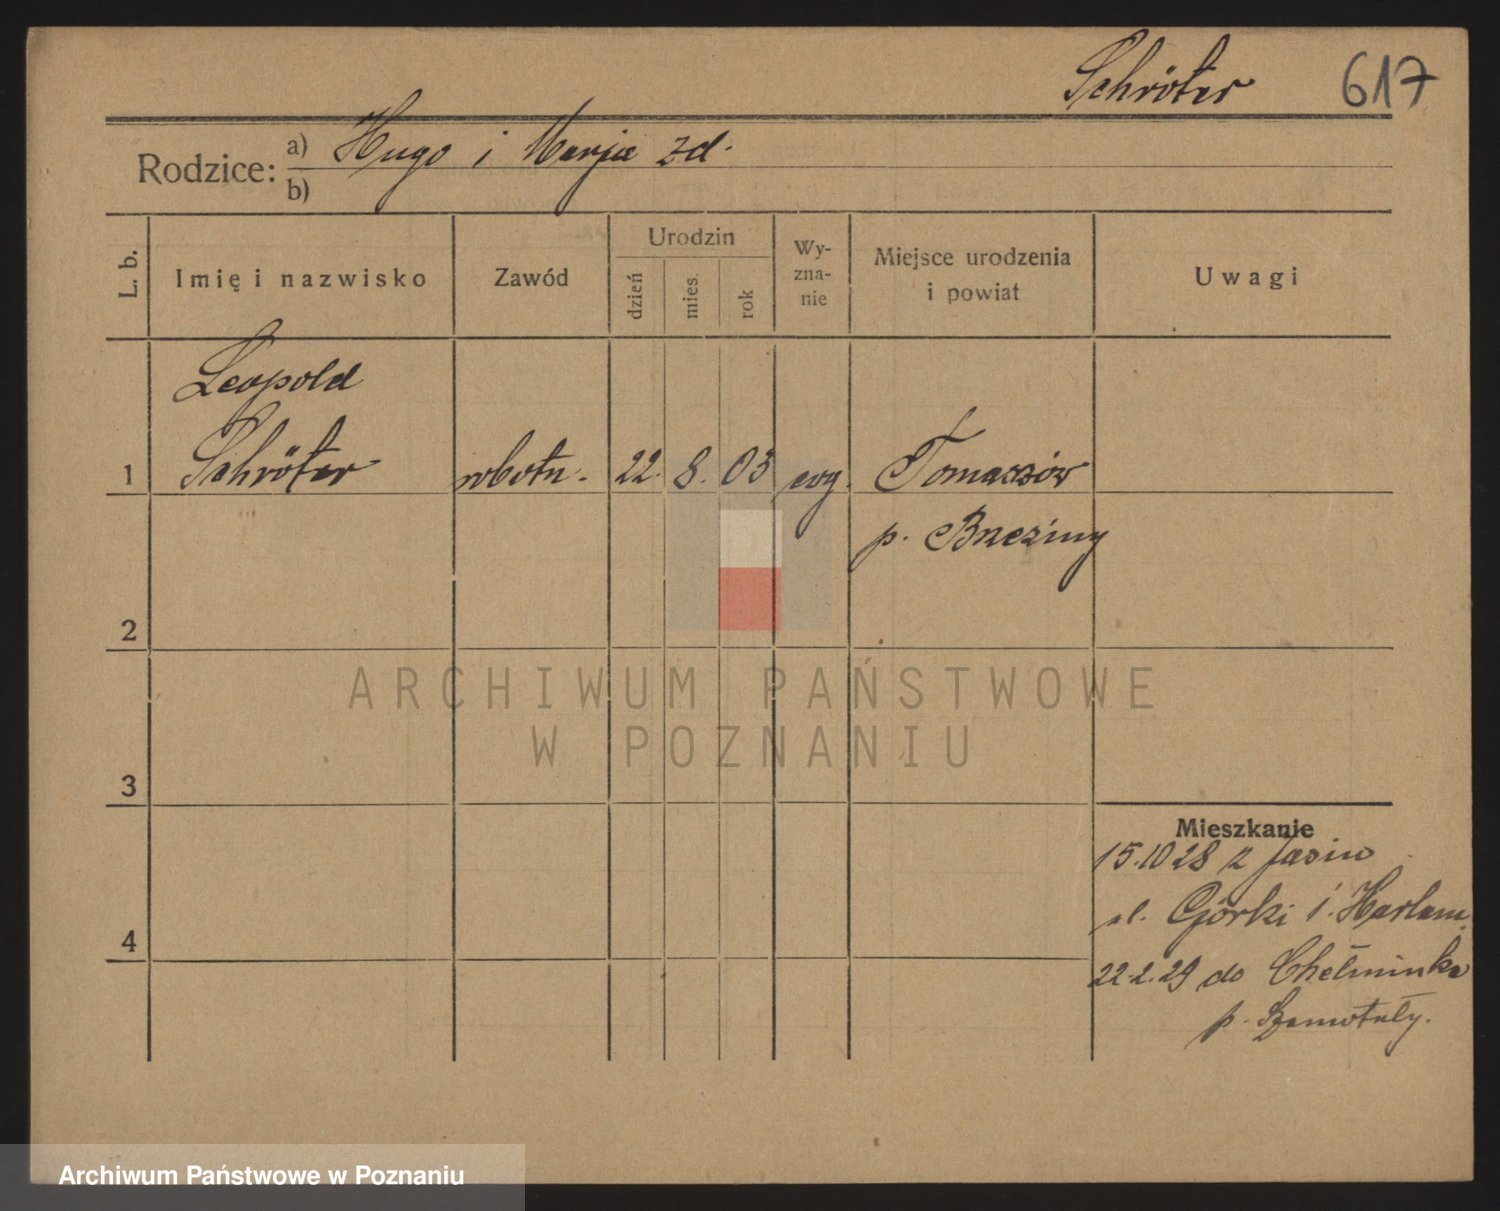 Schröter 617
Rodzice: a) Hugo i Marja zd.
b)
L. b. Imię i nazwisko Zawód Urodzin dzień mies. rok Wy-zna-nie Miejsce urodzenia i powiat Uwagi
Leopold
1 Schröter robotn. 22. 8. 03 ewg. Tomaszów
p. Brzeziny
2
ARCHIWUM PAŃSTWOWE
W POZNANIU
3
Mieszkanie
15.10 28 z Jasin
ul. Górki i
4
22.2.29 do Chełminka
p. Szamotuły.
Archiwum Państwowe w Poznaniu